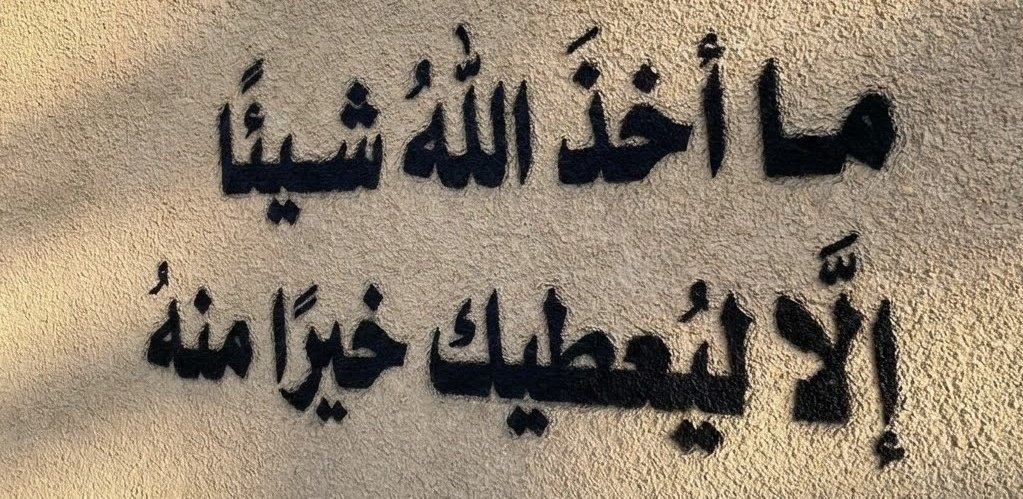 ما أخذَ اللهُ شيئًا
إلَّا ليُعطيك خيرًا منهُ